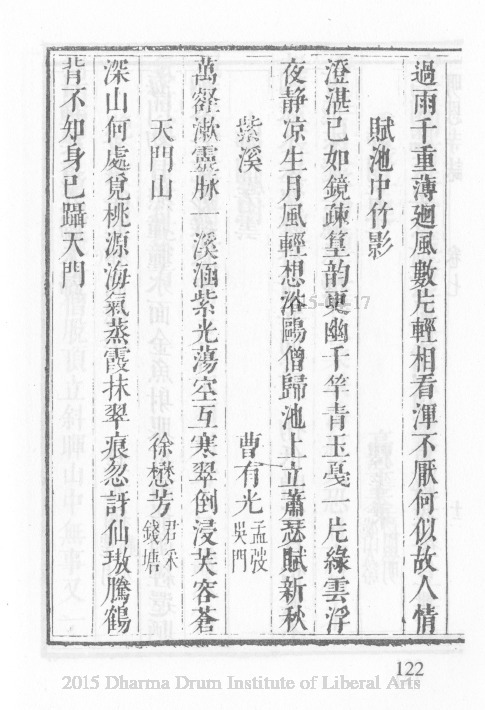 過雨千重薄廻風數片輕相看渾不厭何似故人情
賦池中竹影
澄湛已如鏡疎篁韵更幽千竿青玉戞一片綠雲浮
夜静凉生月風輕想浴鷗僧歸池上立蕭瑟賦新秋
紫溪 曹有光 孟㢸 吳門
萬壑漱靈脉一溪涵紫光蕩空互寒翠倒浸芙容蒼
天門山 徐懋芳 君采 錢塘
深山何處覓桃源海氣蒸霞抹翠痕忽訝仙璈騰鶴
背不知身已躡天門
122
2015 Dharma Drum Institute of Liberal Arts